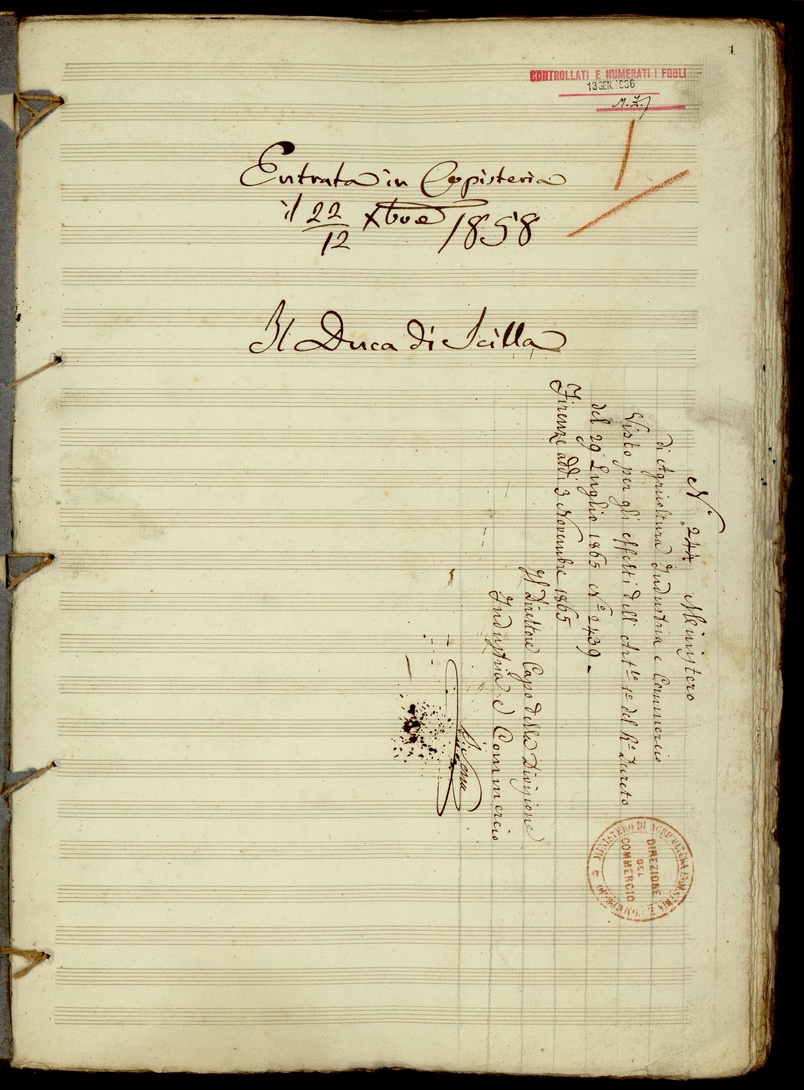 1
CONTROLLATI E NUMERATI I FOGLI
13 GEN. 1936
M.Z.
Entrata in Copisteria
il 22/12 Xbre 1858
Il Duca di Scilla
N° 244 Ministero
di Agricoltura Industria e Commercio
Visto per gli effetti dell' Art.lo 1° del R° Decreto
del 29 Luglio 1865 N° 2439 -
Firenze addì 3 Novembre 1865
Il Direttore Capo della Divisione
Industria e Commercio
MINISTERO DI AGRICOLTURA INDUSTRIA E COMMERCIO
DIREZIONE
DEL
COMMERCIO